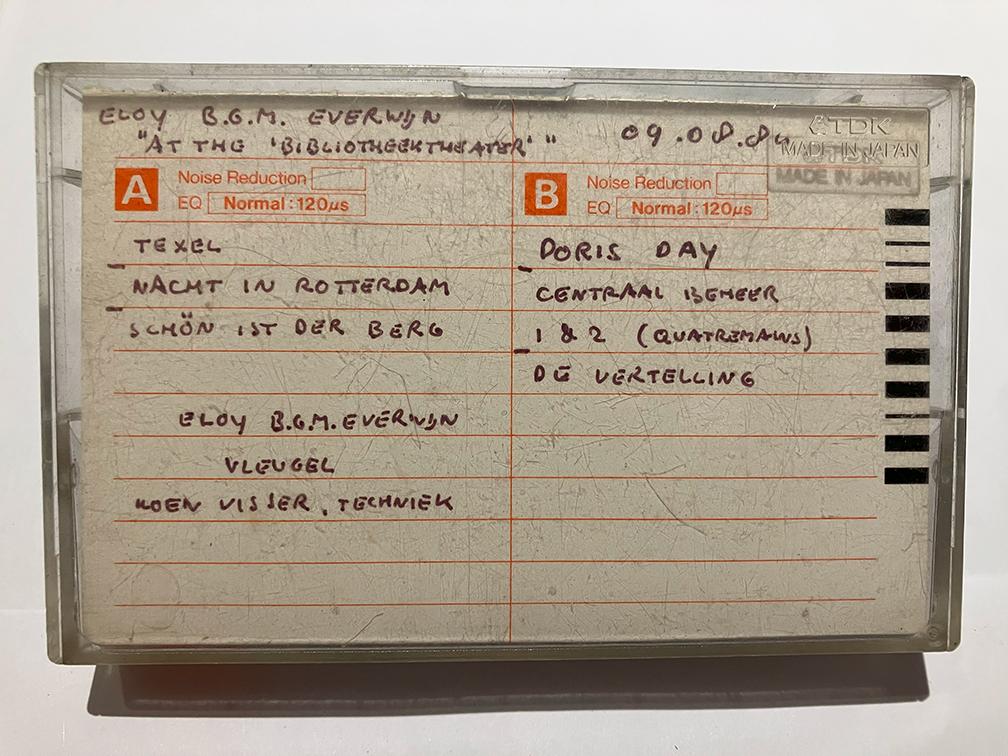 ELOY B.G.M. EVERWIJN
"AT THE 'BIBLIOTHEEKTHEATER'"
09.08.84
TDK
MADE IN JAPAN
MADE IN JAPAN
A
Noise Reduction
EQ Normal : 120µs
TEXEL
NACHT IN ROTTERDAM
SCHÖN IST DER BERG
ELOY B.G.M. EVERWIJN
VLEUGEL
KOEN VISSER, TECHNIEK
B
Noise Reduction
EQ Normal : 120µs
DORIS DAY
CENTRAAL BEHEER
1 & 2 (QUATREMAINS)
DE VERTELLING